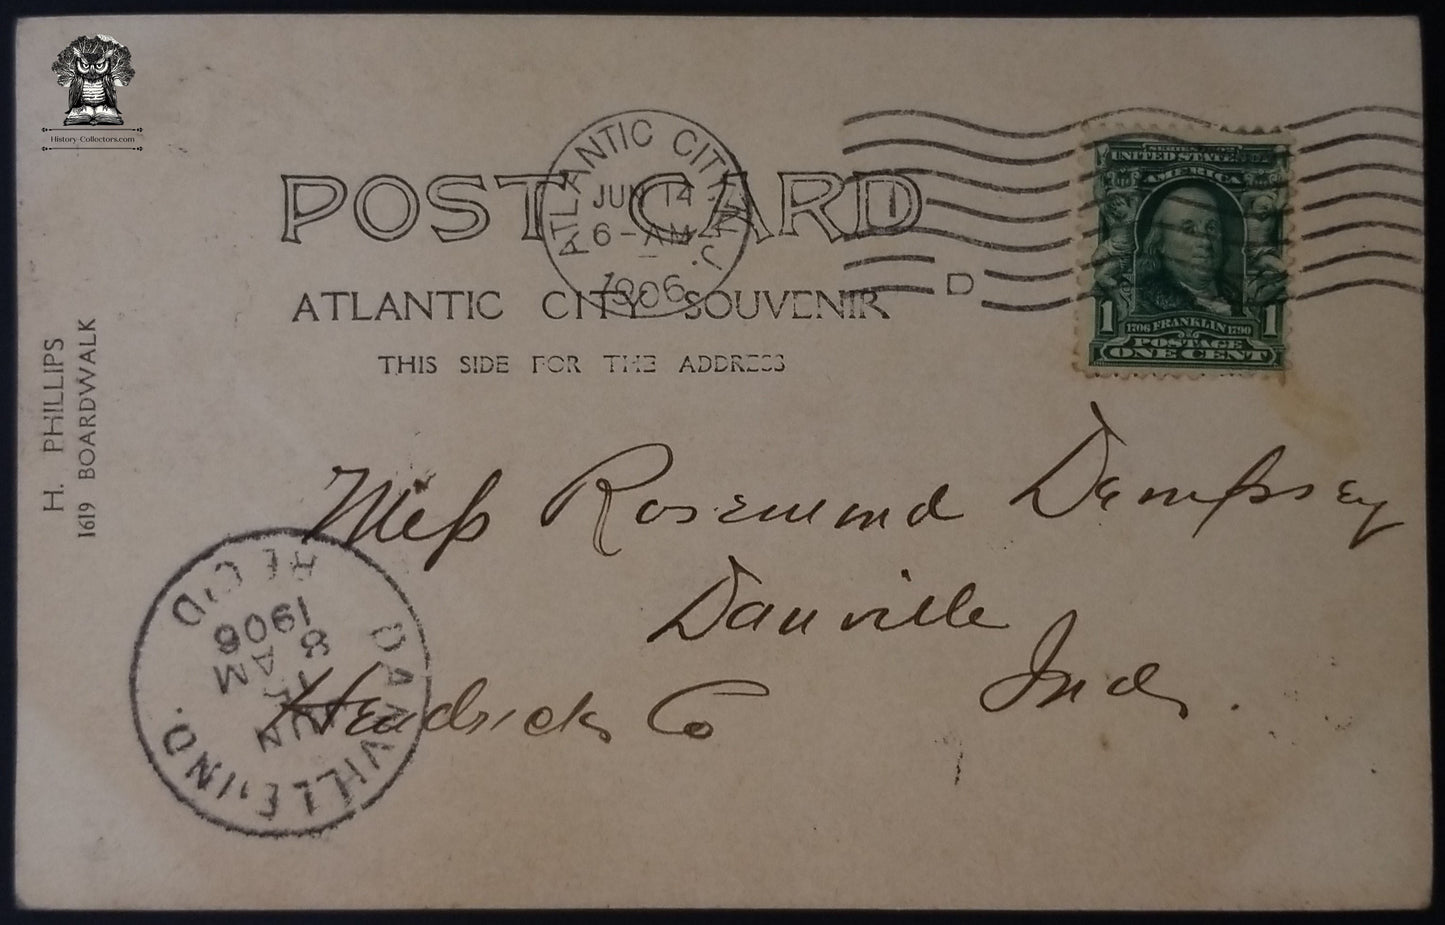 History-Collectors.com
POST CARD
ATLANTIC CITY SOUVENIR
THIS SIDE FOR THE ADDRESS
ATLANTIC CITY, N. J.
JUN 14
6-AM
1906
D
SERIES 1902
UNITED STATES OF
AMERICA
1 1706 FRANKLIN 1790 1
POSTAGE
ONE CENT
H. PHILLIPS
1619 BOARDWALK
Miss Rosemond Dempsey
Danville
Hendricks Co Ind.
DANVILLE, IND.
JUN
8 AM
1906
REC'D